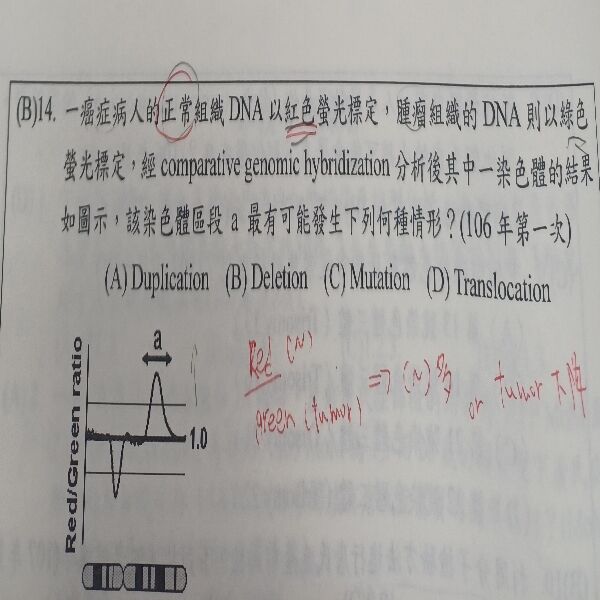 (B)14. 一癌症病人的正常組織 DNA 以紅色螢光標定，腫瘤組織的 DNA 則以綠色
螢光標定，經 comparative genomic hybridization 分析後其中一染色體的結果
如圖示，該染色體區段 a 最有可能發生下列何種情形？(106 年第一次)
(A) Duplication (B) Deletion (C) Mutation (D) Translocation
a
Red/Green ratio
1.0
Red (N)
green (tumor)
=> (N) 多 or tumor 下降